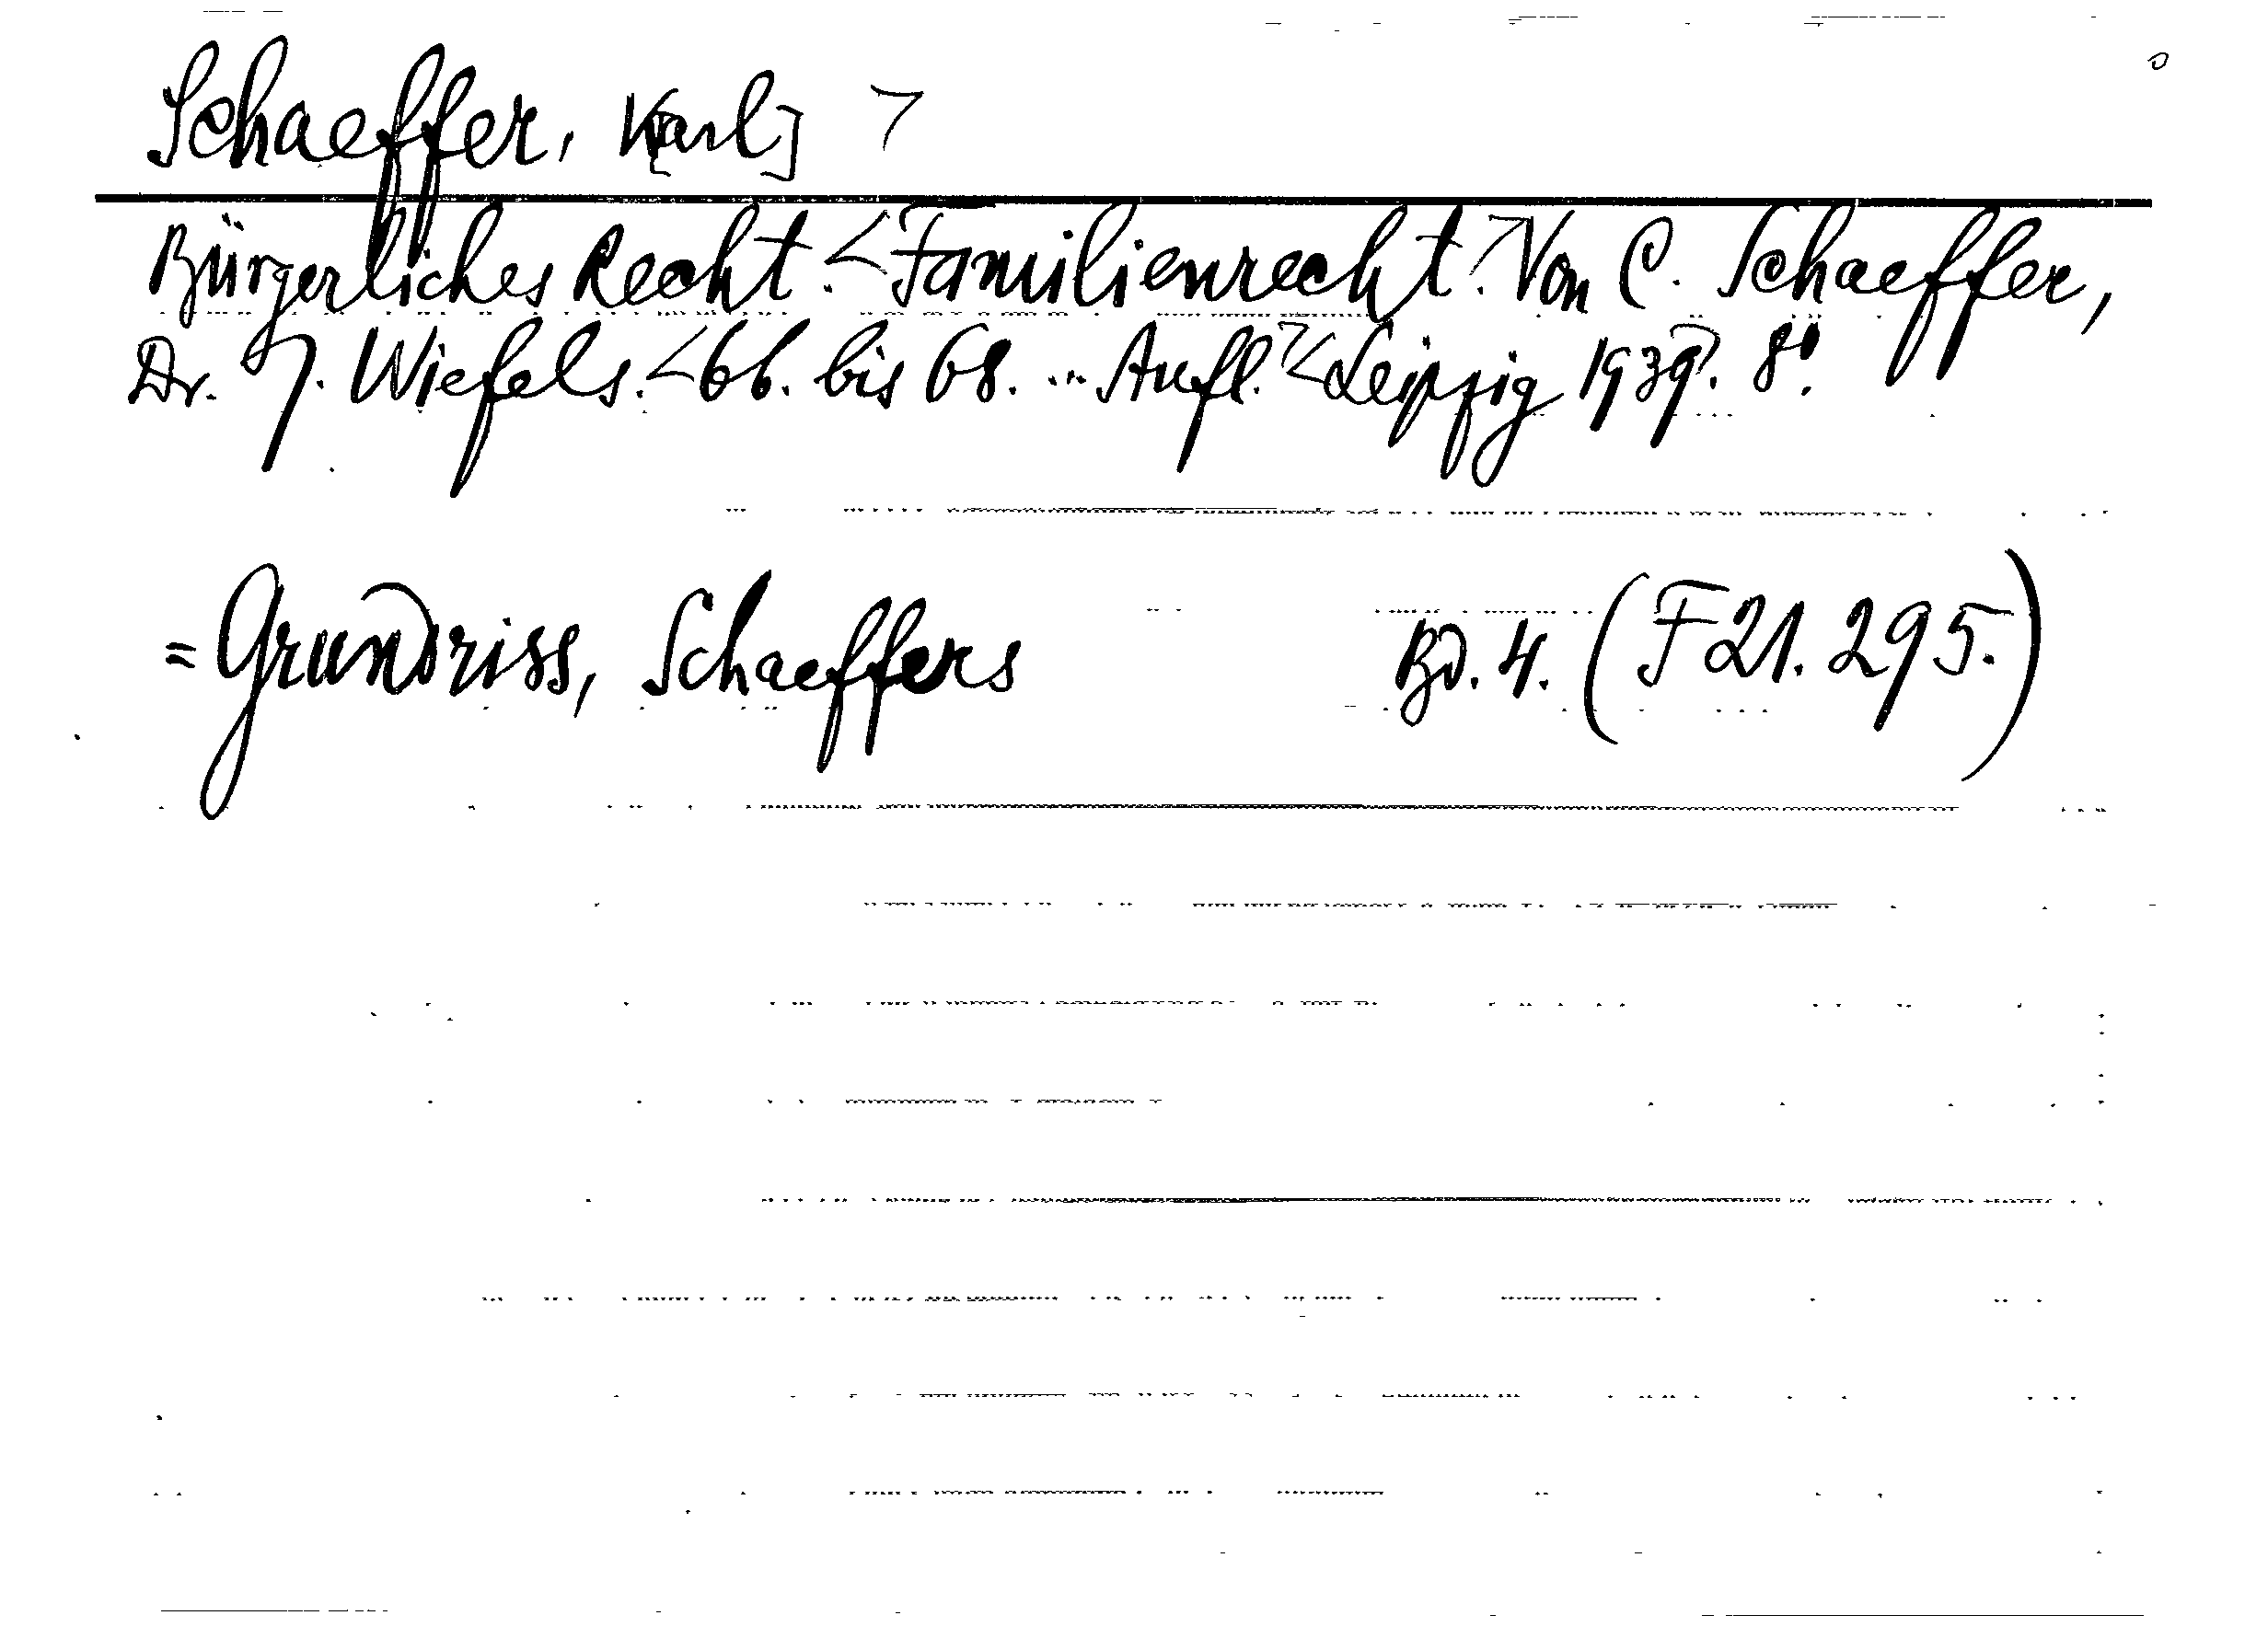 Schaeffer, K[arl] >
Bürgerliches Recht. <Familienrecht.> Von C. Schaeffer,
Dr. J. Wiefels. <66. bis 68. ... Aufl.> <Leipzig 1939>. 8°.
= Grundriss, Schaeffers Bd. 4. (F21. 295.)